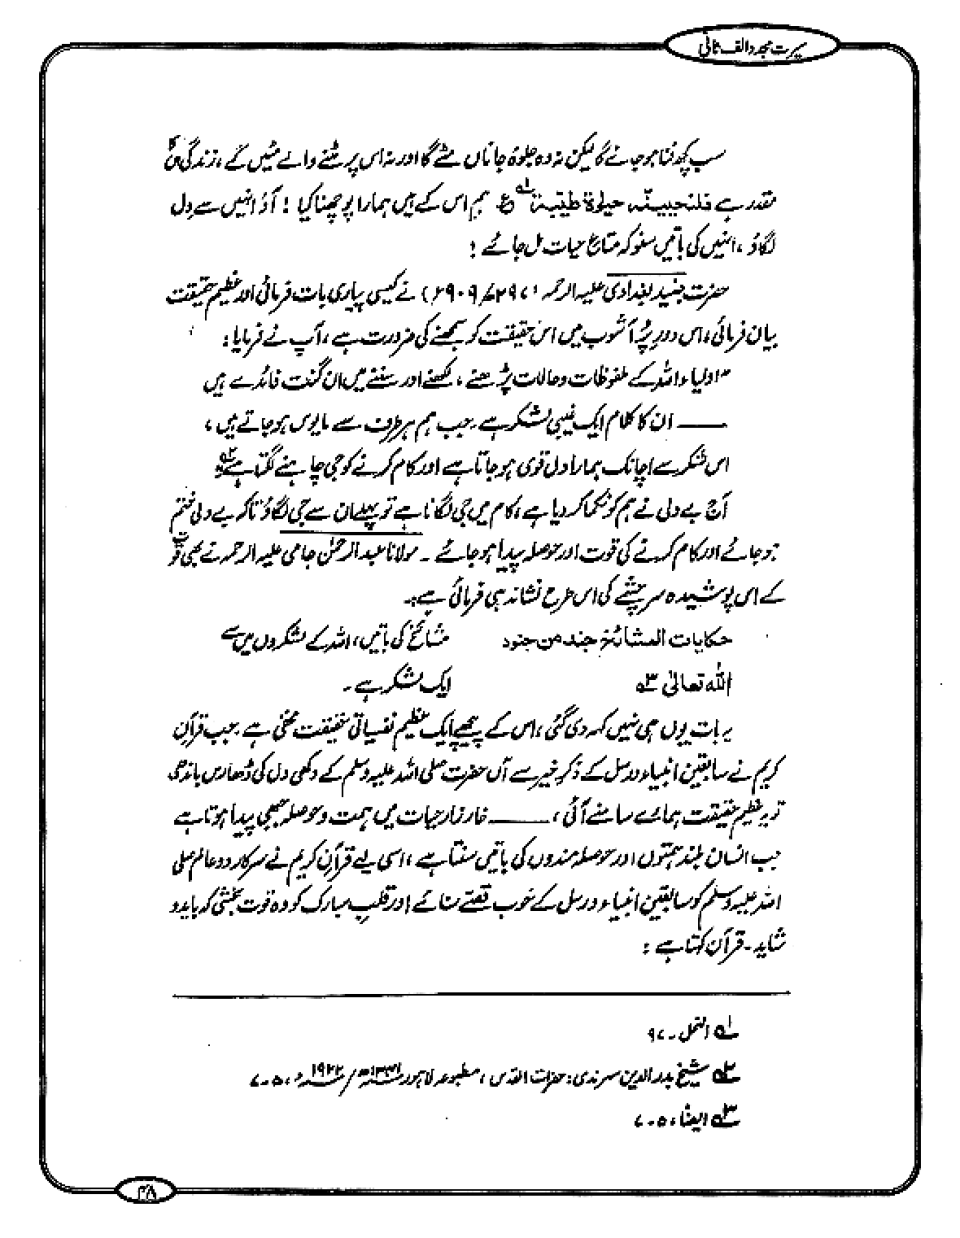 سیرت مجدد الف ثانی
سب کچھ فنا ہو جائے گا لیکن نہ وہ جلوۂ جاناں مٹے گا اور نہ اس پر مٹنے والے مٹیں گے ، زندگی ان کا
مقدر ہے فلنحیینّہ حیٰوۃ طیبۃ ۱ ع ہم اس کے ہیں ہمارا پوچھنا کیا ! آؤ انہیں سے دل
لگاؤ ، انہیں کی باتیں سنو کہ متاعِ حیات مل جائے !
حضرت جنید بغدادی علیہ الرحمہ (۲۹۷ھ/۹۰۹ء) نے کیسی پیاری بات فرمائی اور عظیم حقیقت
بیان فرمائی ، اس دورِ پُر آشوب میں اس حقیقت کو سمجھنے کی ضرورت ہے ، آپ نے فرمایا :
" اولیاء اللہ کے ملفوظات و حالات پڑھنے ، لکھنے اور سننے میں ان گنت فائدے ہیں
—— ان کا کلام ایک غیبی لشکر ہے جب ہم ہر طرف سے مایوس ہو جاتے ہیں ،
اس لشکر سے اچانک ہمارا دل قوی ہو جاتا ہے اور کام کرنے کو جی چاہنے لگتا ہے ۲
آج بے دلی نے ہم کو نکما کر دیا ہے ، کام میں جی لگانا ہے تو پہلے ان سے جی لگاؤ تاکہ بے دلی ختم
ہو جائے اور کام کرنے کی قوت اور حوصلہ پیدا ہو جائے ۔ مولانا عبدالرحمٰن جامی علیہ الرحمہ نے بھی قوت
کے اس پوشیدہ سرچشمے کی اس طرح نشاندہی فرمائی ہے :۔
حکایات المشائخ جند من جنود مشائخ کی باتیں ، اللہ کے لشکروں میں سے
اللہ تعالیٰ ۳ ایک لشکر ہے ۔
یہ بات یوں ہی نہیں کہہ دی گئی ، اس کے پیچھے ایک عظیم نفسیاتی حقیقت مخفی ہے جب قرآنِ
کریم نے سابقین انبیاء و رسل کے ذکرِ خیر سے آں حضرت صلی اللہ علیہ وسلم کے دکھی دل کی ڈھارس باندھی
تو یہ عظیم حقیقت ہمارے سامنے آئی ، —— خارزارِ حیات میں ہمت و حوصلہ جبھی پیدا ہوتا ہے
جب انسان بلند ہمتوں اور حوصلہ مندوں کی باتیں سنتا ہے ، اسی لیے قرآن کریم نے سرکار دو عالم صلی
اللہ علیہ وسلم کو سابقین انبیاء و رسل کے خوب قصے سنائے اور قلبِ مبارک کو وہ قوت بخشی کہ باید و
شاید ۔ قرآن کہتا ہے :
۱ النحل ۔ ۹۷
۲ شیخ بدر الدین سرہندی : حضرات القدس ، مطبوعہ لاہور ۱۳۴۱ھ / ۱۹۲۲ء ، ص ۵۔۷
۳ ایضاً ، ص ۵۔۷
۳۸